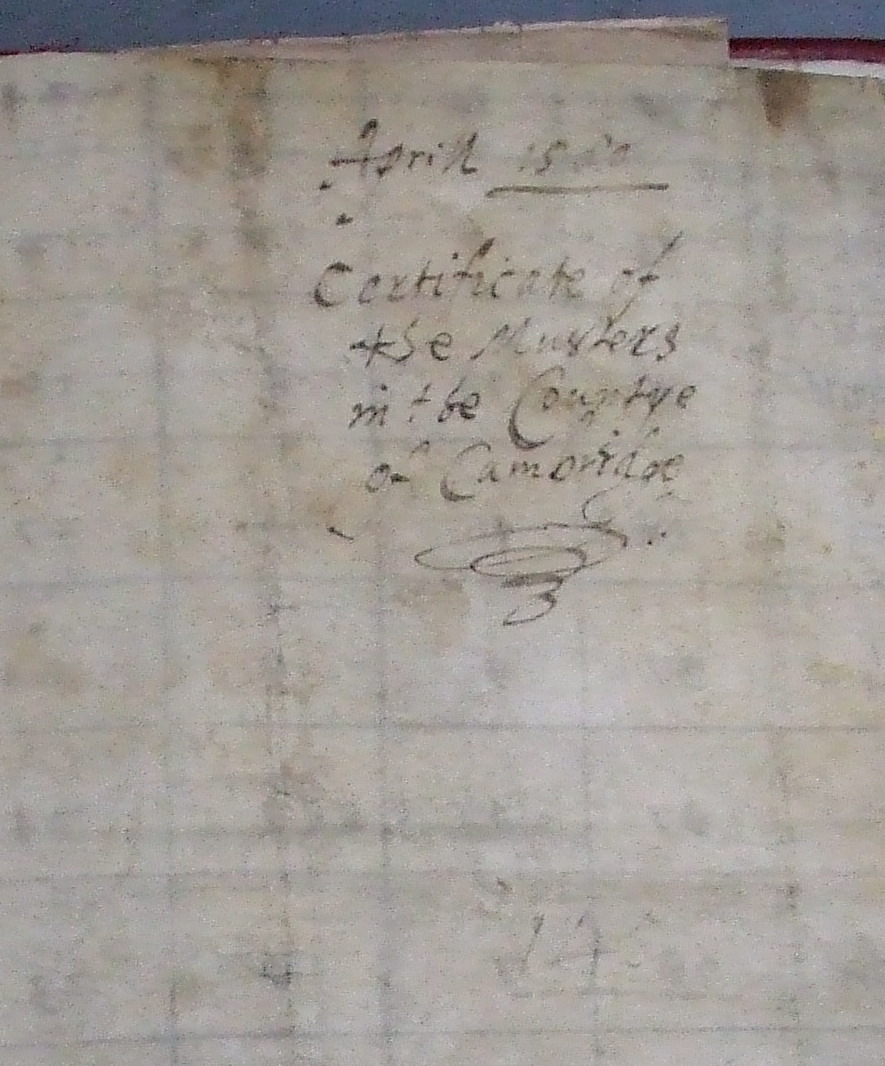 Aprill 1580
Certificate of
the Musters
in the Countye
of Cambridge